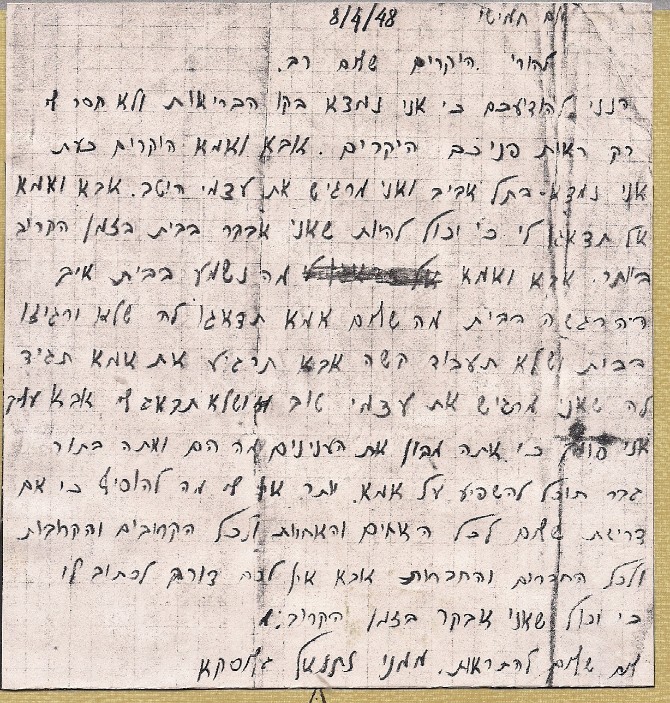 יום חמישי 8/4/48
להורי היקרים שלום רב.
הנני להודיעכם כי אני נמצא בקו הבריאות ולא חסר לי
רק ראות פניכם היקרים. אבא ואמא היקרים כעת
אני נמצא בתל אביב ואני מרגיש את עצמי היטב. אבא ואמא
אל תדאגו לי כי יכול להיות שאני אבקר בבית בזמן הקרוב
ביותר. אבא ואמא מה נשמע בבית איך
ההרגשה בבית מה שלום אמא תדאגו לה שלא ירגיזו
בבית ושלא תעבוד קשה אבא תרגיע את אמא תגיד
לה שאני מרגיש את עצמי טוב ושלא תדאג לי אבא
אני סומך כי אתה מבין את הענינים מה הם ואתה בתור
גבר תוכל להשפיע על אמא. יותר אין לי מה להוסיף כי אם
דרישת שלום לכל האחים והאחיות ולכל הקרובים והקרובות
ולכל החברים והחברות אבא אין לכם צורך לכתוב לי
כי יכול שאני אבקר בזמן הקרוב.
שלום להתראות. ממני